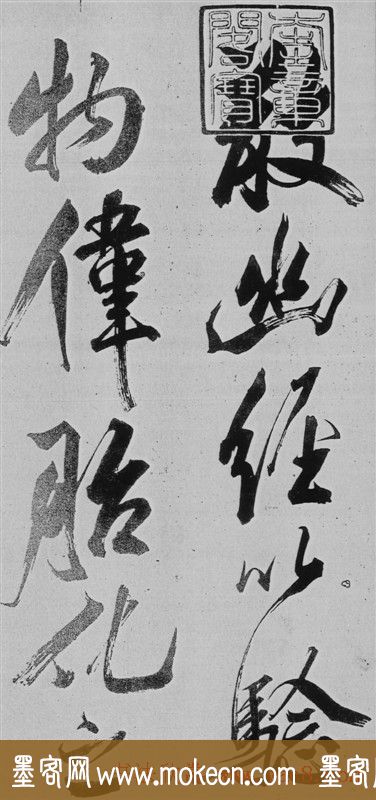 奎章
閣寶
散幽經以驗
物偉胎化之
墨客网 www.mokecn.com 墨客网